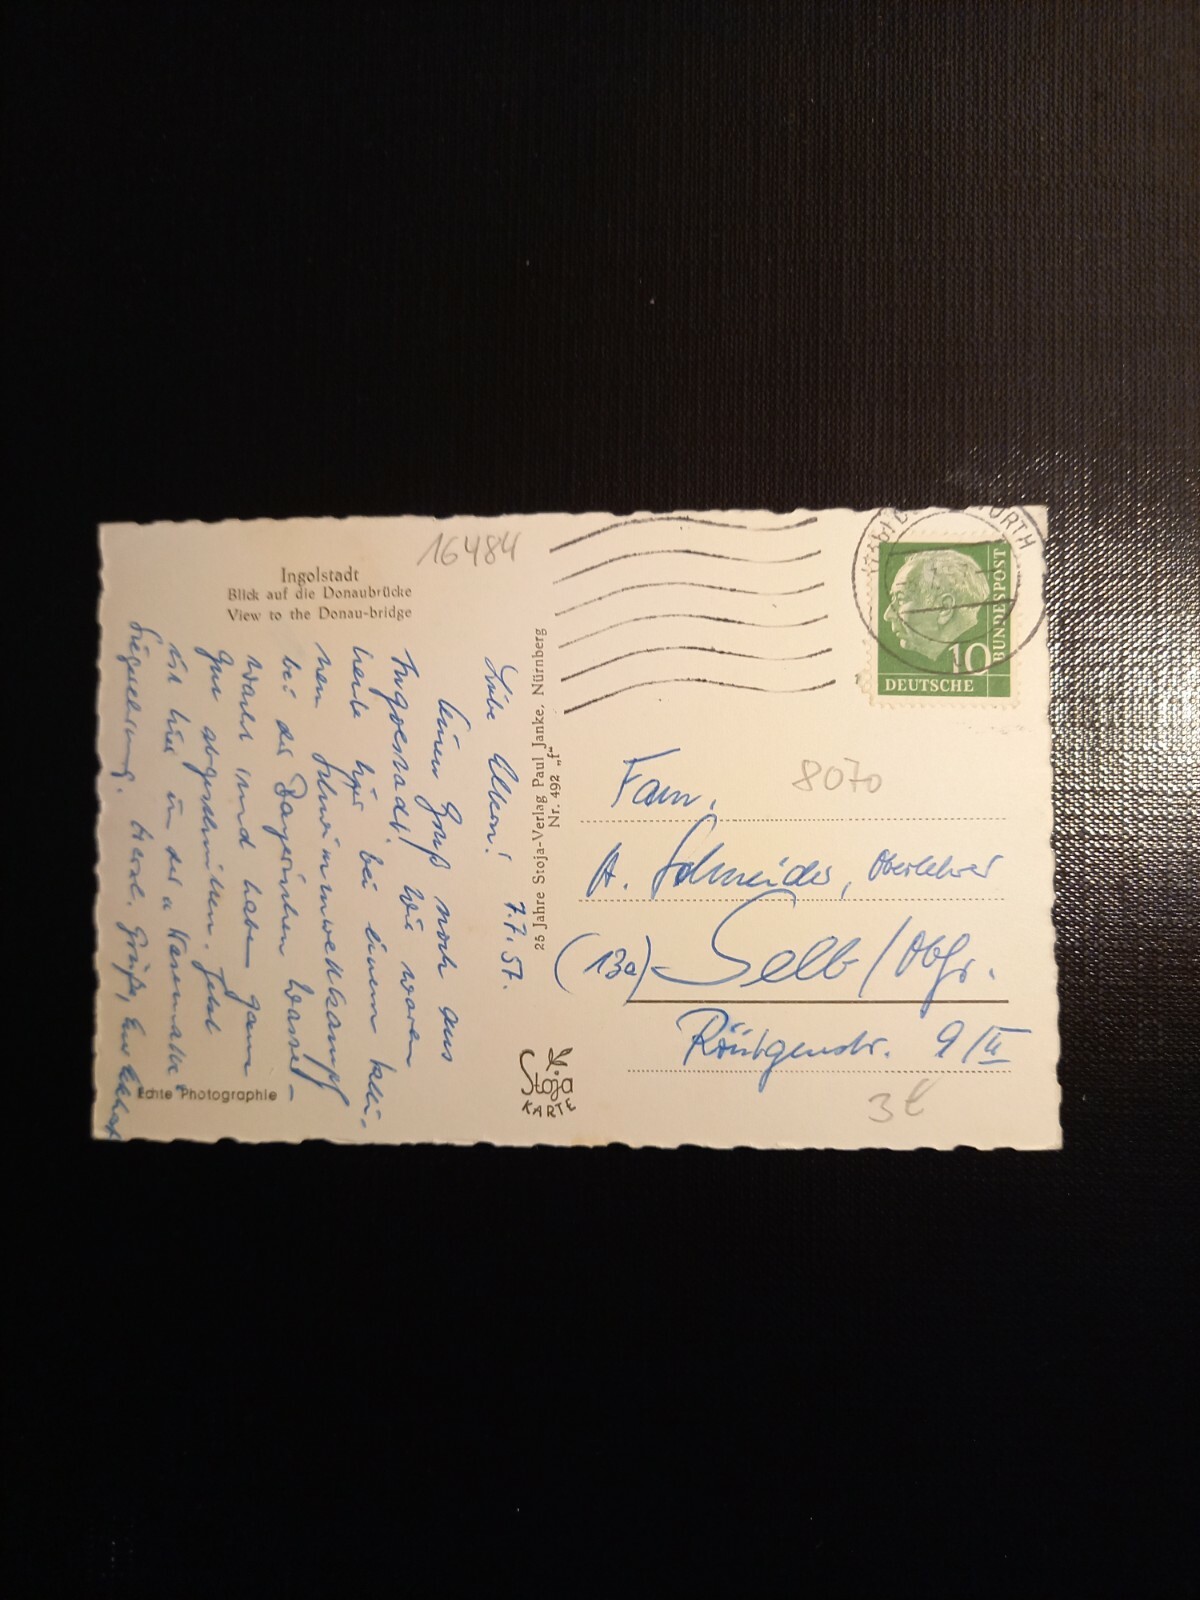 16484
Ingolstadt
Blick auf die Donaubrücke
View to the Donau-bridge
7.7.57.
Liebe Eltern!
Einen Gruß noch aus
Ingolstadt! Wir waren
heute hier bei einem klei-
nen Schwimmwettkampf
bei der Bayerischen Wasser-
wacht und haben ganz
gut abgeschnitten. Jetzt
ist hier in der
Siegerehrung. Herzl. Grüße, Euer
Echte Photographie
25 Jahre Stoja-Verlag Paul Janke, Nürnberg
Nr. 492 „f"
Stoja
KARTE
10
DEUTSCHE
BUNDESPOST
8070
Fam.
A. Schneider, Oberlehrer
(13a) Selb/Obfr.
Röntgenstr. 9/II
3€